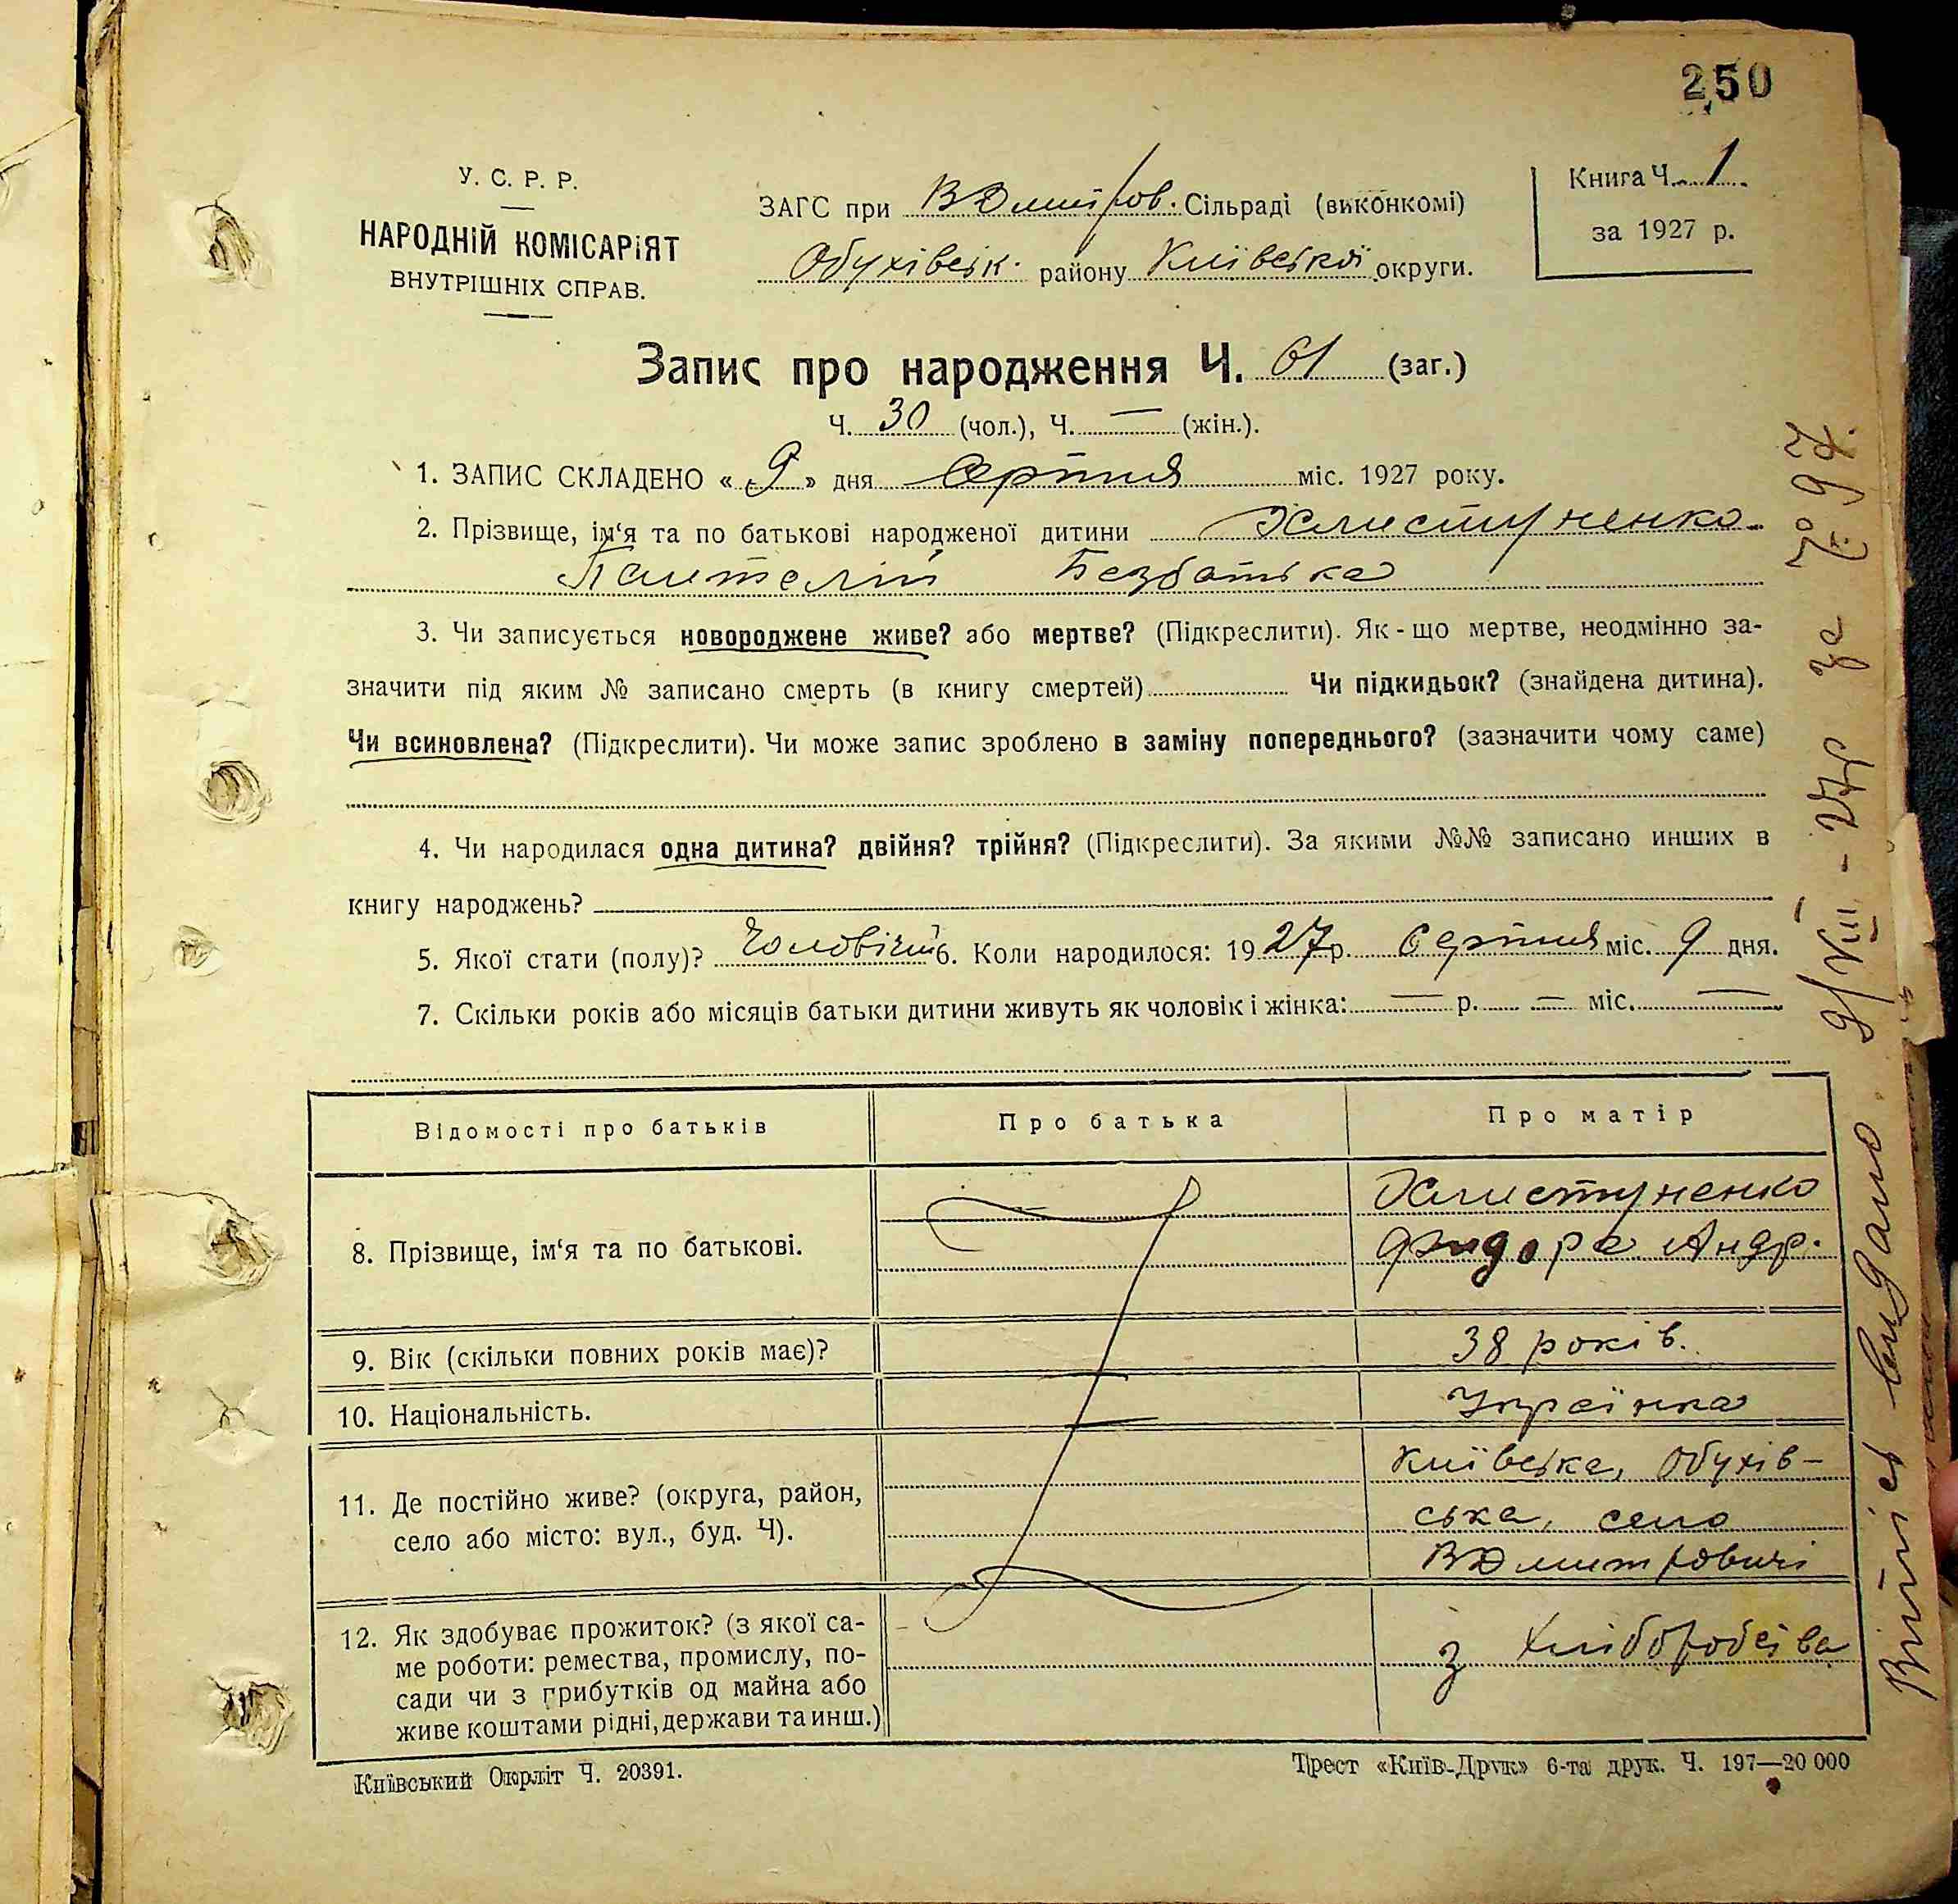 250
У. С. Р. Р.
НАРОДНІЙ КОМІСАРІЯТ
ВНУТРІШНІХ СПРАВ.
ЗАГС при ВДмитров. Сільраді (виконкомі)
Обухівськ. району Київської округи.
Книга Ч. 1
за 1927 р.
Запис про народження Ч. 61 (заг.)
Ч. 30 (чол.), Ч. — (жін.).
1. ЗАПИС СКЛАДЕНО « 9 » дня Серпня міс. 1927 року.
2. Прізвище, ім‘я та по батькові народженої дитини Хлистуненко
Пантелій Безбатька
3. Чи записується новороджене живе? або мертве? (Підкреслити). Як-що мертве, неодмінно за-
значити під яким № записано смерть (в книгу смертей) Чи підкидьок? (знайдена дитина).
Чи всиновлена? (Підкреслити). Чи може запис зроблено в заміну попереднього? (зазначити чому саме)
4. Чи народилася одна дитина? двійня? трійня? (Підкреслити). За якими №№ записано инших в
книгу народжень?
5. Якої стати (полу)? Чоловічий 6. Коли народилося: 1927 р. Серпня міс. 9 дня.
7. Скільки років або місяців батьки дитини живуть як чоловік і жінка: — р. — міс. —
Відомості про батьків Про батька Про матір
8. Прізвище, ім‘я та по батькові. Хлистуненко
Фидора Андр.
9. Вік (скільки повних років має)? 38 років.
10. Національність. Українка
11. Де постійно живе? (округа, район, Київська, Обухів-
село або місто: вул., буд. Ч). ська, село
ВДмитровичі
12. Як здобуває прожиток? (з якої са- з хліборобства
ме роботи: ремества, промислу, по-
сади чи з прибутків од майна або
живе коштами рідні, держави та инш.)
Київський Окрліт Ч. 20391.
Трест «Київ-Друк» 6-та друк. Ч. 197—20 000
видано 9/VIII-27р за № 97.